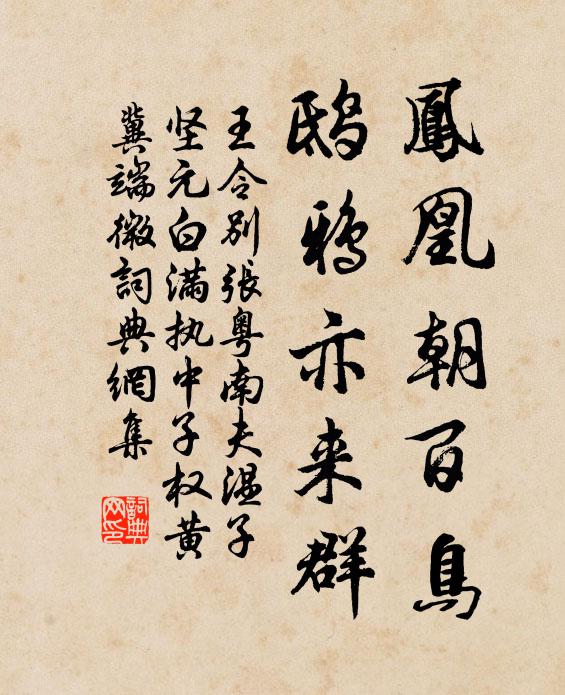 鳳凰朝百鳥
鴟鴉亦来群
王令别張粤南夫温子
坚元白满执中子权黄
冀端微詞典網集
詞典网印